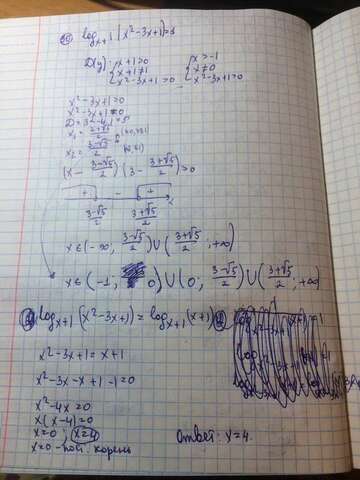 log_{x+1}(x²-3x+1)=1
D(y): { x+1>0 { x>-1
x+1≠1 x≠0
x²-3x+1>0 x²-3x+1>0
x²-3x+1>0
x²-3x+1=0
x₂ = (3-√5)/2
(x - (3-√5)/2)(3 - (3+√5)/2)>0
+ - +
(3-√5)/2 (3+√5)/2 x
x∈(-∞; (3-√5)/2)∪((3+√5)/2; +∞)
x∈(-1; 0)∪(0; (3-√5)/2)∪((3+√5)/2; +∞)
log_{x+1}(x²-3x+1)=log_{x+1}(x+1)
x²-3x+1=x+1
x²-3x-x+1-1=0
x²-4x=0
x(x-4)=0
x=0; x=4
x=0 - пост. корень
Ответ: x=4.